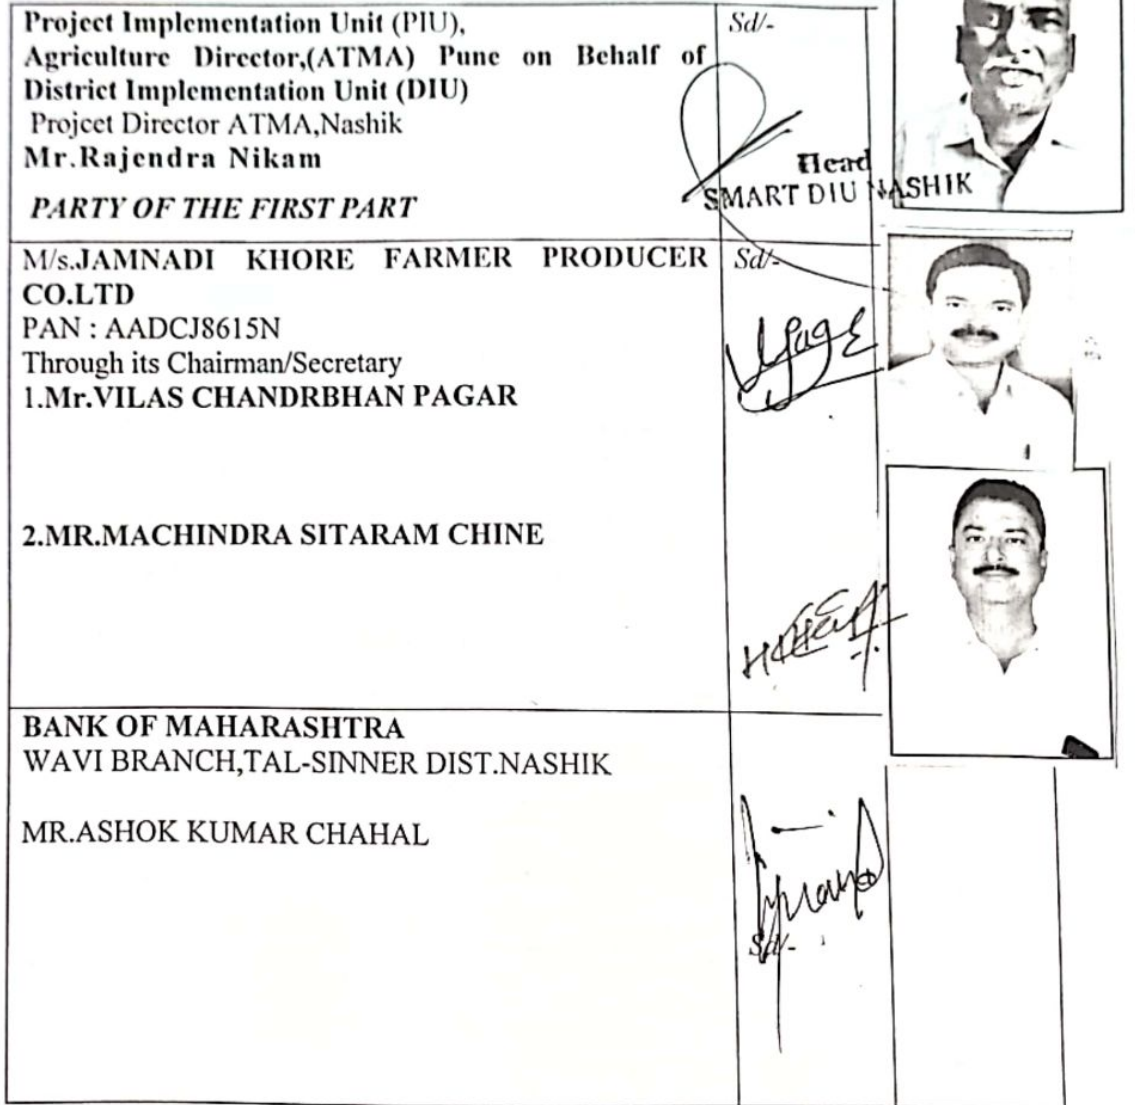 Project Implementation Unit (PIU),
Agriculture Director,(ATMA) Pune on Behalf of
District Implementation Unit (DIU)
Project Director ATMA,Nashik
Mr.Rajendra Nikam
PARTY OF THE FIRST PART
Sd/-
Head
SMART DIU NASHIK
M/s.JAMNADI KHORE FARMER PRODUCER
CO.LTD
PAN : AADCJ8615N
Through its Chairman/Secretary
1.Mr.VILAS CHANDRBHAN PAGAR
Sd/-
2.MR.MACHINDRA SITARAM CHINE
BANK OF MAHARASHTRA
WAVI BRANCH,TAL-SINNER DIST.NASHIK
MR.ASHOK KUMAR CHAHAL
Sd/-